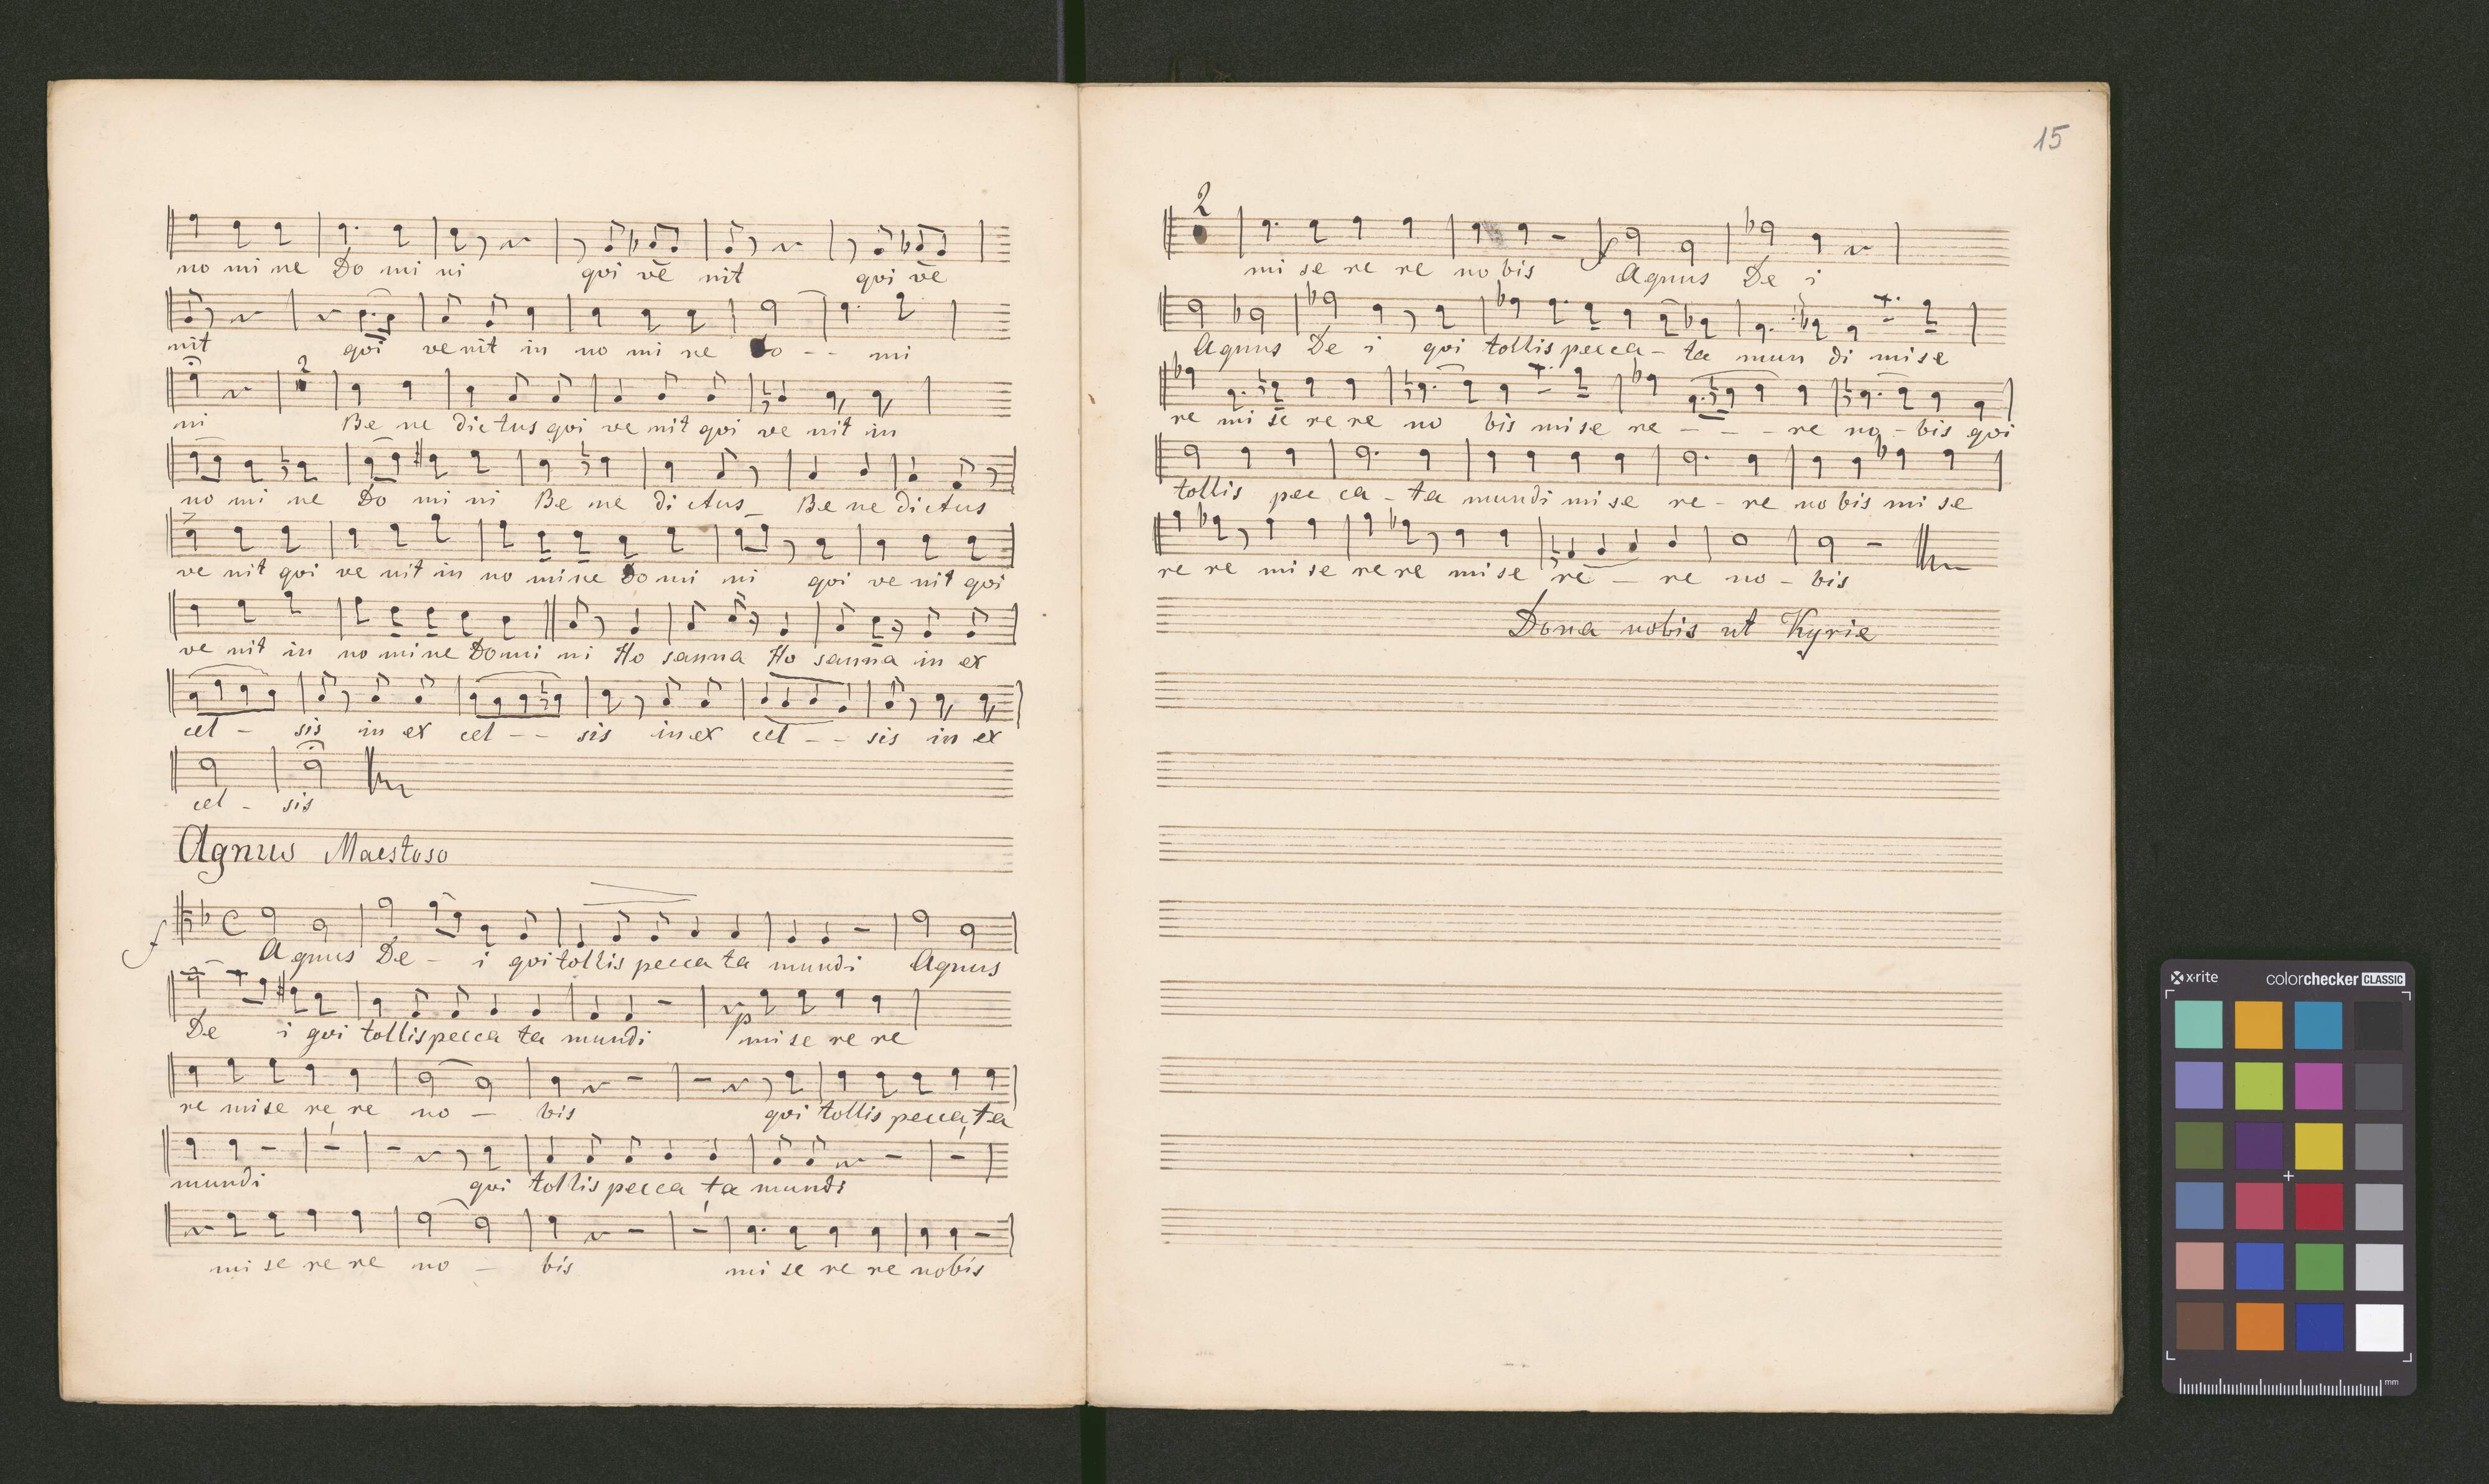 no mi ne Do mi ni qvi ve nit qvi ve
nit qvi ve nit in no mi ne Do - - mi
2
ni Be ne dictus qvi ve nit qvi ve nit in
no mi ne Do mi ni Be ne di ctus_ Be ne dictus
ve nit qvi ve nit in no mi ne Do mi ni qvi ve nit qvi
ve nit in no mi ne Do mi ni Ho sanna Ho sanna in ex
cel - sis in ex cel - - sis in ex cel - - sis in ex
cel - sis
Agnus Maestoso
f
A gnus De - i qvi tollis pecca ta mundi Agnus
p
De i qvi tollis pecca ta mundi mi se re re
re mi se re re no - bis qvi tollis pecca ta
mundi qvi tollis pecca ta mundi
mi se re re no - bis mi se re re nobis
15
2
f
mi se re re no bis Agnus De i
Agnus De i qvi tollis pecca - ta mun di mi se
re mi se re re no bis mi se re - - - re no - bis qvi
tollis pec ca - ta mundi mi se re - re no bis mi se
re re mi se re re mi se re - re no - bis
Dona nobis ut Kyrie
x·rite colorchecker CLASSIC
mm